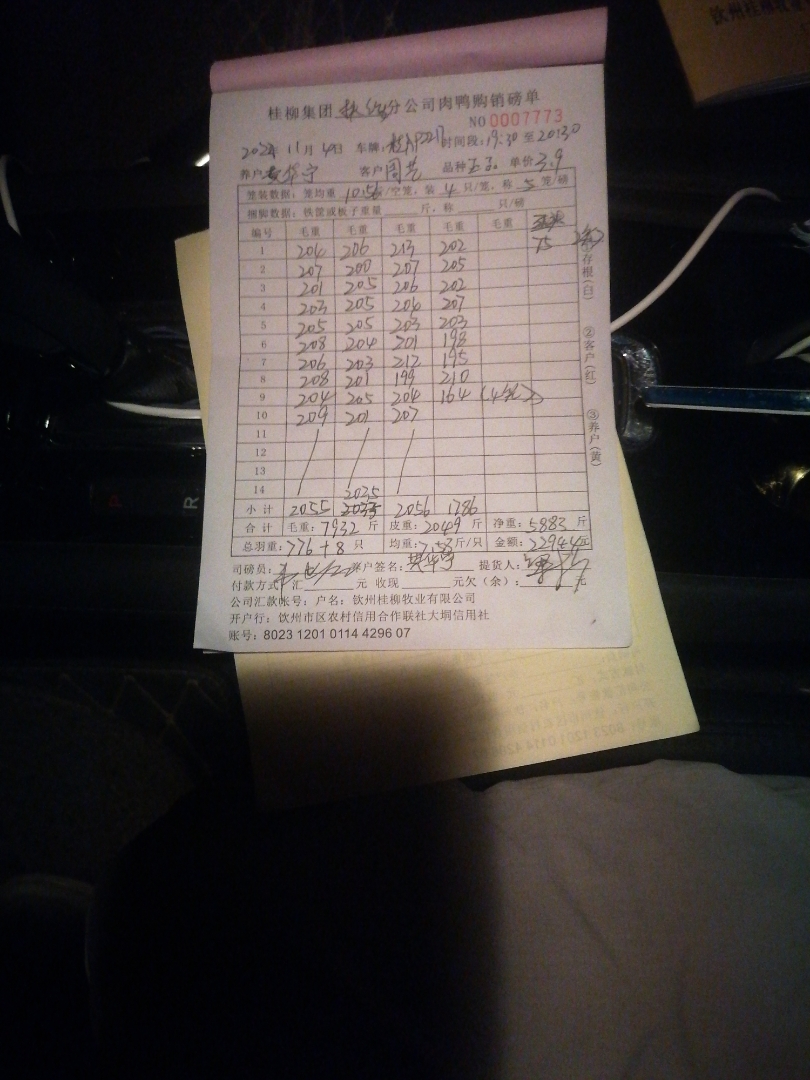 钦州桂柳牧业
桂柳集团 钦州 分公司肉鸭购销磅单
NO 0007773
2024 11月10日 车牌: 时间段: 19:30 至 20:30
养户 黄华宁 客户 周艺 品种 单价 3.9
笼装数据: 笼均重 10.56 /空笼, 装 4 只/笼, 称 5 笼/磅
捆脚数据: 铁筐或板子重量 斤, 称 只/磅
编号 毛重 毛重 毛重 毛重 毛重
1 204 206 213 202 75
2 207 200 207 205
3 201 205 206 202
4 203 205 206 207
5 205 205 203 203
6 208 204 201 198
7 206 203 212 195
8 208 201 199 210
9 204 205 204 164 (4笼)
10 209 201 207
11
12
13
14 2035
小计 2055 2035 2056 1786
合计 毛重: 7932 斤 皮重: 2049 斤 净重: 5883 斤
总羽重: 776+8 只 均重: 7.58 斤/只 金额: 22944 元
司磅员: 养户签名: 黄华宁 提货人:
付款方式: 汇 元 收现 元欠(余): 元
公司汇款帐号: 户名: 钦州桂柳牧业有限公司
开户行: 钦州市区农村信用合作联社大垌信用社
账号: 8023 1201 0114 4296 07
存根(白)
②客户(红)
③养户(黄)
P
R